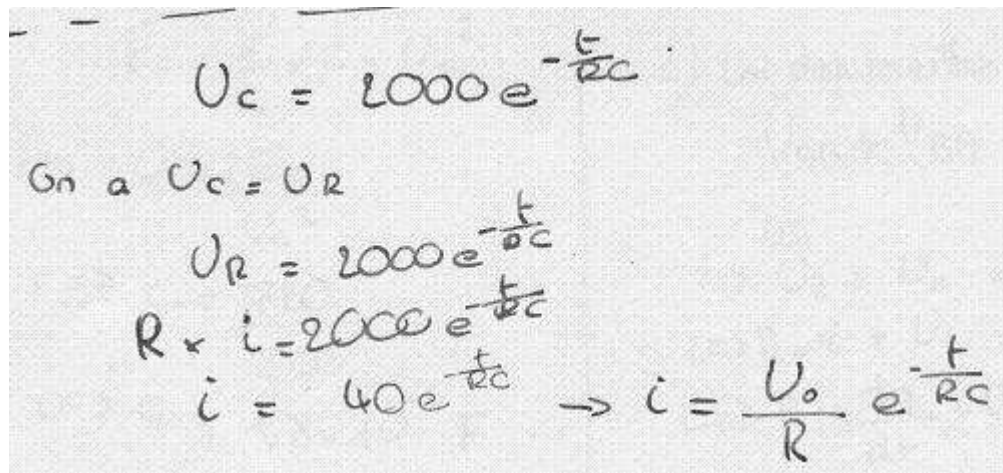 U_c = 2000 e^{-\frac{t}{RC}}
On a U_c = U_R
U_R = 2000 e^{-\frac{t}{RC}}
R × i = 2000 e^{-\frac{t}{RC}}
i = 40 e^{-\frac{t}{RC}} → i = \frac{U_0}{R} e^{-\frac{t}{RC}}